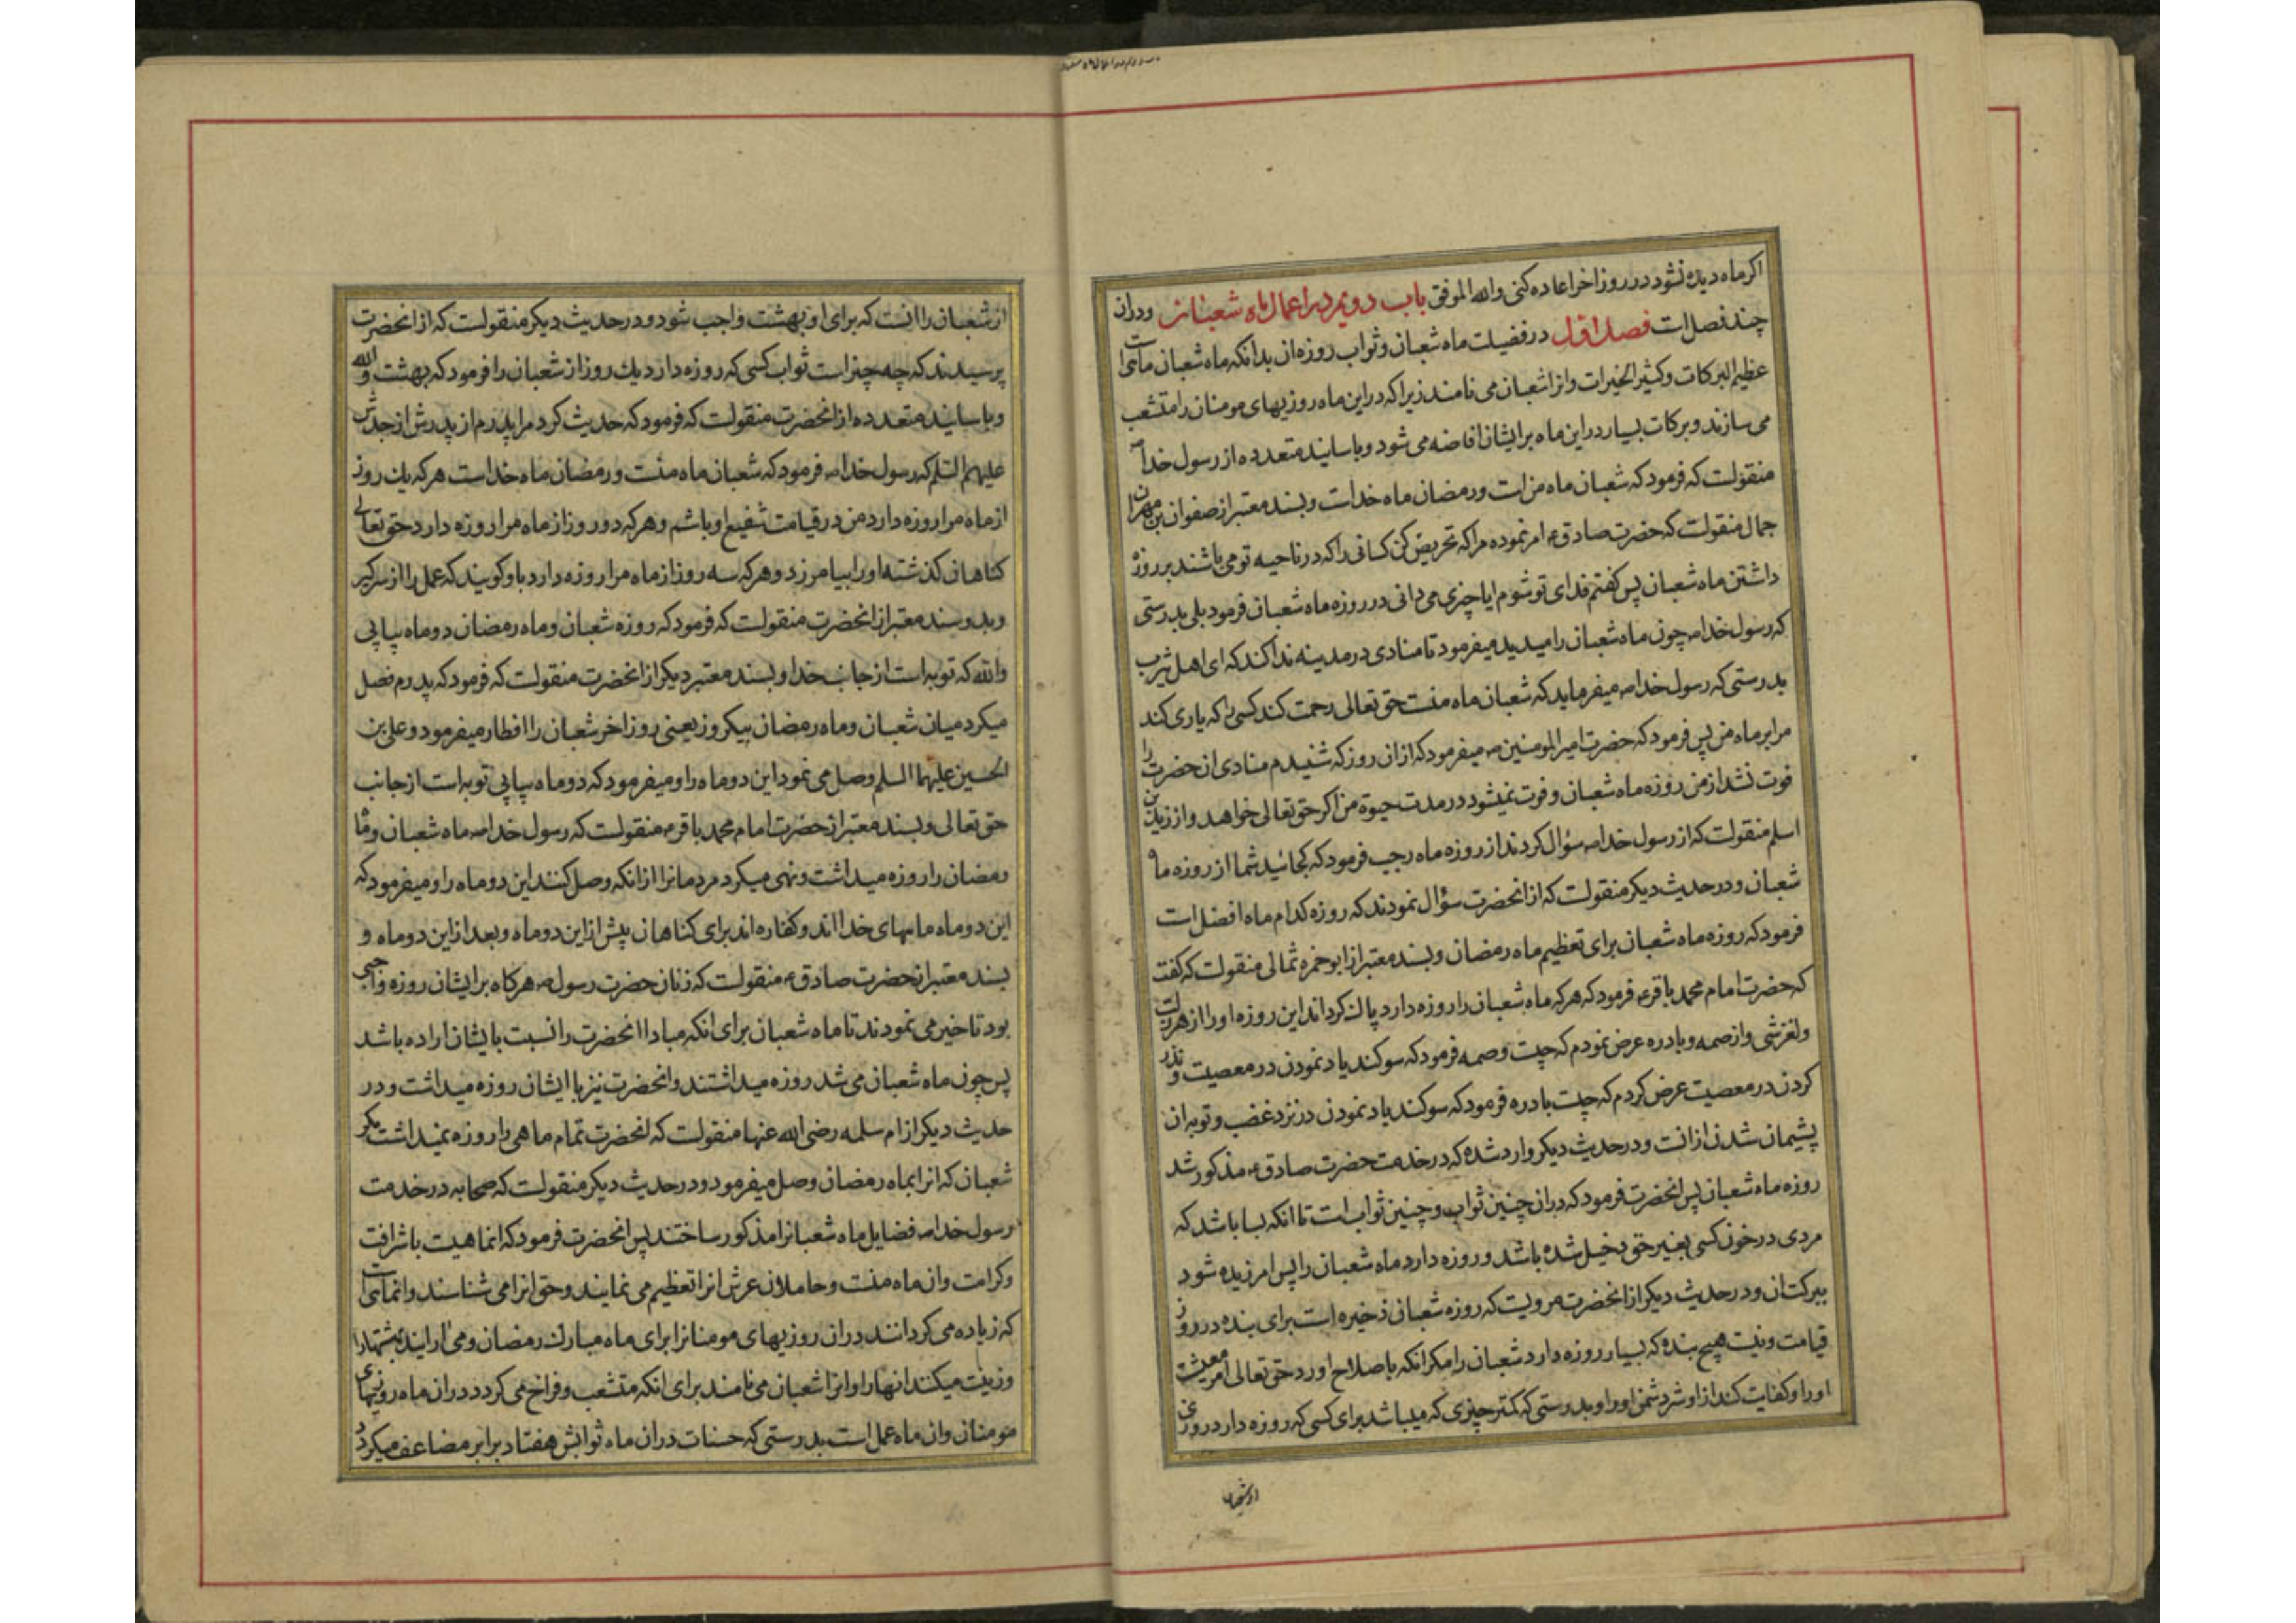 اکرماه دیده نشود در روز اخر اعاده کنی والله الموفق باب دویم در اعمال ماه شعبان و دران
چند فصل است فصل اول در فضیلت ماه شعبان و ثواب روزه ان بدانکه ماه شعبان ماهی است
عظیم البرکات و کثیر الخیرات و انرا شعبان می نامند زیرا که در این ماه روزیهای مومنان را متشعب
می سازند و برکات بسیار در این ماه بر ایشان افاضه می شود و باسانید متعدده از رسول خدا ص
منقولست که فرمود که شعبان ماه من است و رمضان ماه خدا است و بسند معتبر از صفوان بن مهران
جمال منقولست که حضرت صادق ع امر نموده مرا که تحریص کن کسانی را که در ناحیه تو می باشند بر روزه
داشتن ماه شعبان پس کفتم فدای تو شوم ایا چیزی می دانی در روزه ماه شعبان فرمود بلی بدرستی
که رسول خدا ص چون ماه شعبان را میدید میفرمود تا منادی در مدینه ندا کند که ای اهل یثرب
بدرستی که رسول خدا ص میفرماید که شعبان ماه منست حق تعالی رحمت کند کسی را که یاری کند
مرا بر ماه من پس فرمود که حضرت امیر المومنین ص میفرمود که ازان روز که شنیدم منادی انحضرت را
فوت نشد از من روزه ماه شعبان و فوت نمیشود در مدت حیوة من اکر حق تعالی خواهد و از زید بن
اسلم منقولست که از رسول خدا ص سؤال کردند از روزه ماه رجب فرمود که کجائید شما از روزه ماه
شعبان و در حدیث دیکر منقولست که از انحضرت سؤال نمودند که روزه کدام ماه افضل است
فرمود که روزه ماه شعبان برای تعظیم ماه رمضان و بسند معتبر از ابو حمزه ثمالی منقولست که کفت
که حضرت امام محمد باقر ع فرمود که هر که ماه شعبان را روزه دارد پاک کرداند این روزه او را از هر زلت
و لغزشی و از صمه و بادره عرض نمودم که چیست وصمه فرمود که سوکند یاد نمودن در معصیت و نذر
کردن در معصیت عرض کردم که چیست بادره فرمود که سوکند یاد نمودن در نزد غضب و توبه ان
پشیمان شدن ازانست و در حدیث دیکر وارد شده که در خدمت حضرت صادق ع مذکور شد
روزه ماه شعبان پس انحضرت فرمود که دران چنین ثواب و چنین ثواب است تا انکه بسا باشد که
مردی در خون کسی بغیر حق دخیل شده باشد و روزه دارد ماه شعبان را پس امرزیده شود
ببرکت ان و در حدیث دیکر از انحضرت مرویست که روزه شعبان ذخیره است برای بنده در روز
قیامت و نیست هیچ بنده که بسیار روزه دارد شعبان را مکر انکه باصلاح اورد حق تعالی امر معیشت
او را و کفایت کند از او شر دشمن او را و بدرستی که کمتر چیزی که میباشد برای کسی که روزه دارد روزی
از شعبان
از شعبان را انست که برای او بهشت واجب شود و در حدیث دیکر منقولست که از انحضرت
پرسیدند که چه چیز است ثواب کسی که روزه دارد یک روز از شعبان را فرمود که بهشت والله
و باسانید متعدده از انحضرت منقولست که فرمود که حدیث کرد مرا پدرم از پدرش از جدش
علیهم السلم که رسول خدا ص فرمود که شعبان ماه منست و رمضان ماه خداست هر که یک روز
از ماه مرا روزه دارد من در قیامت شفیع او باشم و هر که دو روز از ماه مرا روزه دارد حق تعالی
کناهان کذشته او را بیامرزد و هر که سه روز از ماه مرا روزه دارد باو کویند که عمل را از سر کیر
و بدو سند معتبر از انحضرت منقولست که فرمود که روزه شعبان و ماه رمضان دو ماه پیاپی
والله که توبه است از جانب خدا و بسند معتبر دیکر از انحضرت منقولست که فرمود که پدرم فصل
میکرد میان شعبان و ماه رمضان بیکروز یعنی روز اخر شعبان را افطار میفرمود و علی بن
الحسین علیهما السلم وصل می نمود این دو ماه را و میفرمود که دو ماه پیاپی توبه است از جانب
حق تعالی و بسند معتبر از حضرت امام محمد باقر ع منقولست که رسول خدا ص ماه شعبان و ماه
رمضان را روزه میداشت و نهی میکرد مردمانرا از انکه وصل کنند این دو ماه را و میفرمود که
این دو ماه ماههای خدا اند و کفاره اند برای کناهان پیش از این دو ماه و بعد از این دو ماه و
بسند معتبر از حضرت صادق ع منقولست که زنان حضرت رسول ص هر کاه بر ایشان روزه واجبی
بود تاخیر می نمودند تا ماه شعبان برای انکه مبادا انحضرت را نسبت بایشان اراده باشد
پس چون ماه شعبان می شد روزه میداشتند و انحضرت نیز با ایشان روزه میداشت و در
حدیث دیکر از ام سلمه رضی الله عنها منقولست که انحضرت تمام ماهی را روزه نمیداشت مکر
شعبان که انرا بماه رمضان وصل میفرمود و در حدیث دیکر منقولست که صحابه در خدمت
رسول خدا ص فضایل ماه شعبانرا مذکور ساختند پس انحضرت فرمود که انماهیست با شرافت
و کرامت و ان ماه منست و حاملان عرش انرا تعظیم می نمایند و حق انرا می شناسند و انماهی است
که زیاده می کردانند دران روزیهای مومنانرا برای ماه مبارک رمضان و می ارایند بهشتها را
و زینت میکنند انها را و انرا شعبان می نامند برای انکه متشعب و فراخ می کردد دران ماه روزیهای
مومنان و ان ماه عمل است بدرستی که حسنات دران ماه ثوابش هفتاد برابر مضاعف میکردد